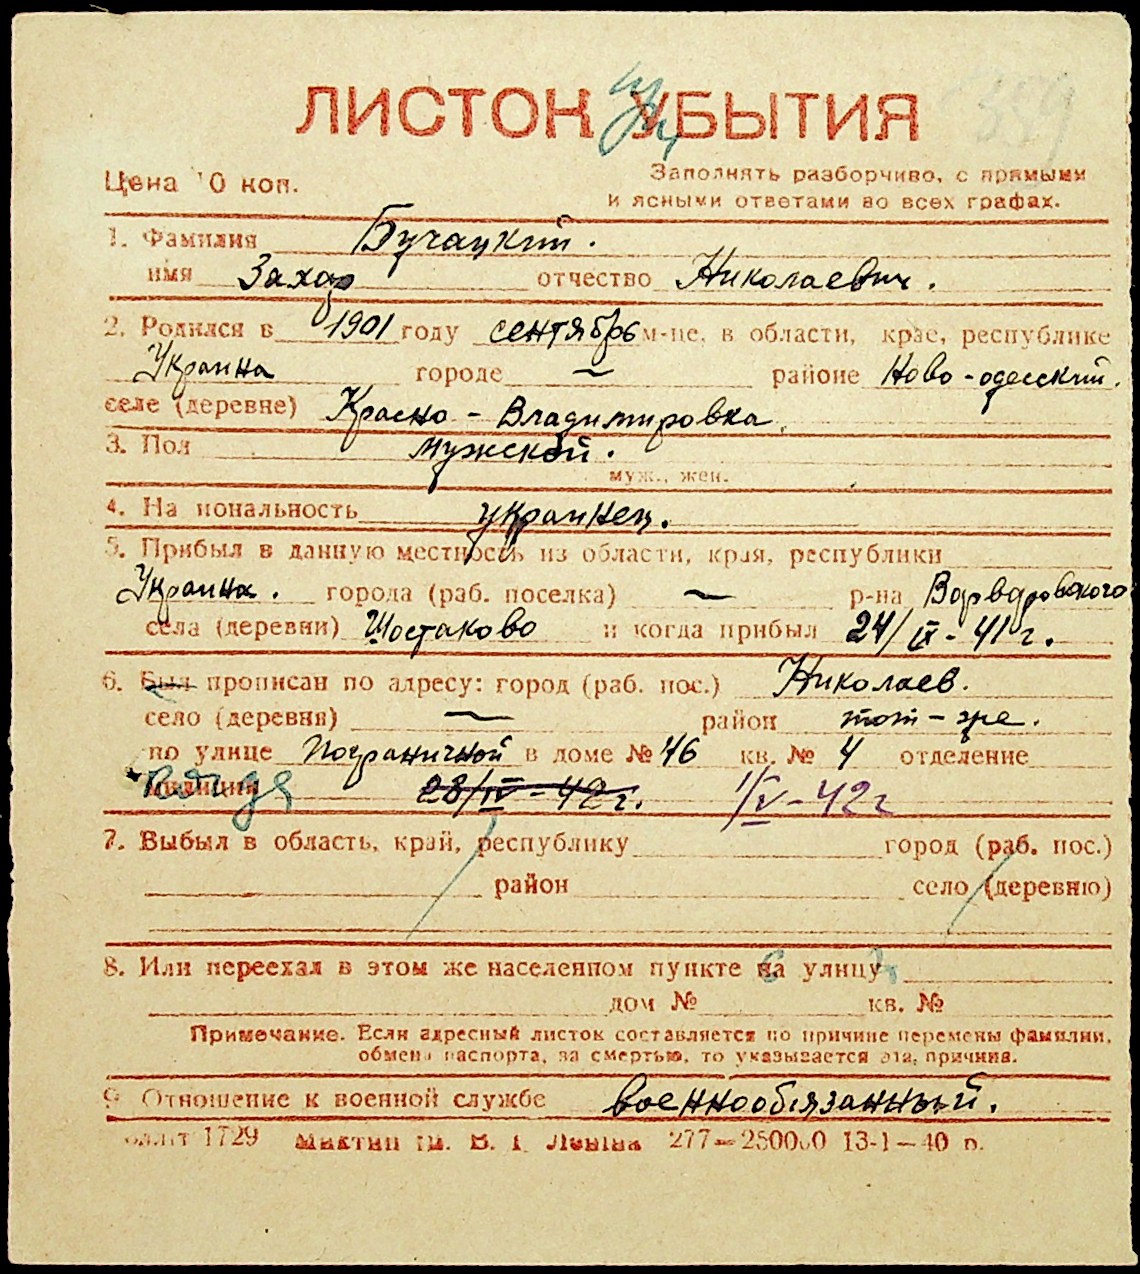 ЛИСТОК УБЫТИЯ
359
Цена 10 коп.
Заполнять разборчиво, с прямыми
и ясными ответами во всех графах.
1. Фамилия Бучацкий.
имя Захар отчество Николаевич.
2. Родился в 1901 году сентябрь м-це, в области, крае, республике
Украина городе — районе Ново-одесский.
селе (деревне) Красно-Владимировка.
3. Пол мужской.
муж., жен.
4. Национальность украинец.
5. Прибыл в данную местность из области, края, республики
Украина. города (раб. поселка) — р-на Варваровского
села (деревни) Шостаково и когда прибыл 24/IX-41 г.
6. Был прописан по адресу: город (раб. пос.) Николаев.
село (деревня) — район тот-же.
по улице Пограничной в доме № 46 кв. № 4 отделение
милиции 28/IV-42 г. 1/V-42 г
7. Выбыл в область, край, республику город (раб. пос.)
район село (деревню)
8. Или переехал в этом же населенном пункте на улицу
дом № кв. №
Примечание. Если адресный листок составляется по причине перемены фамилии,
обмена паспорта, за смертью, то указывается эта причина.
9. Отношение к военной службе военнообязанный.
1729 ім. В. І. Леніна 277—250000 13-1—40 р.